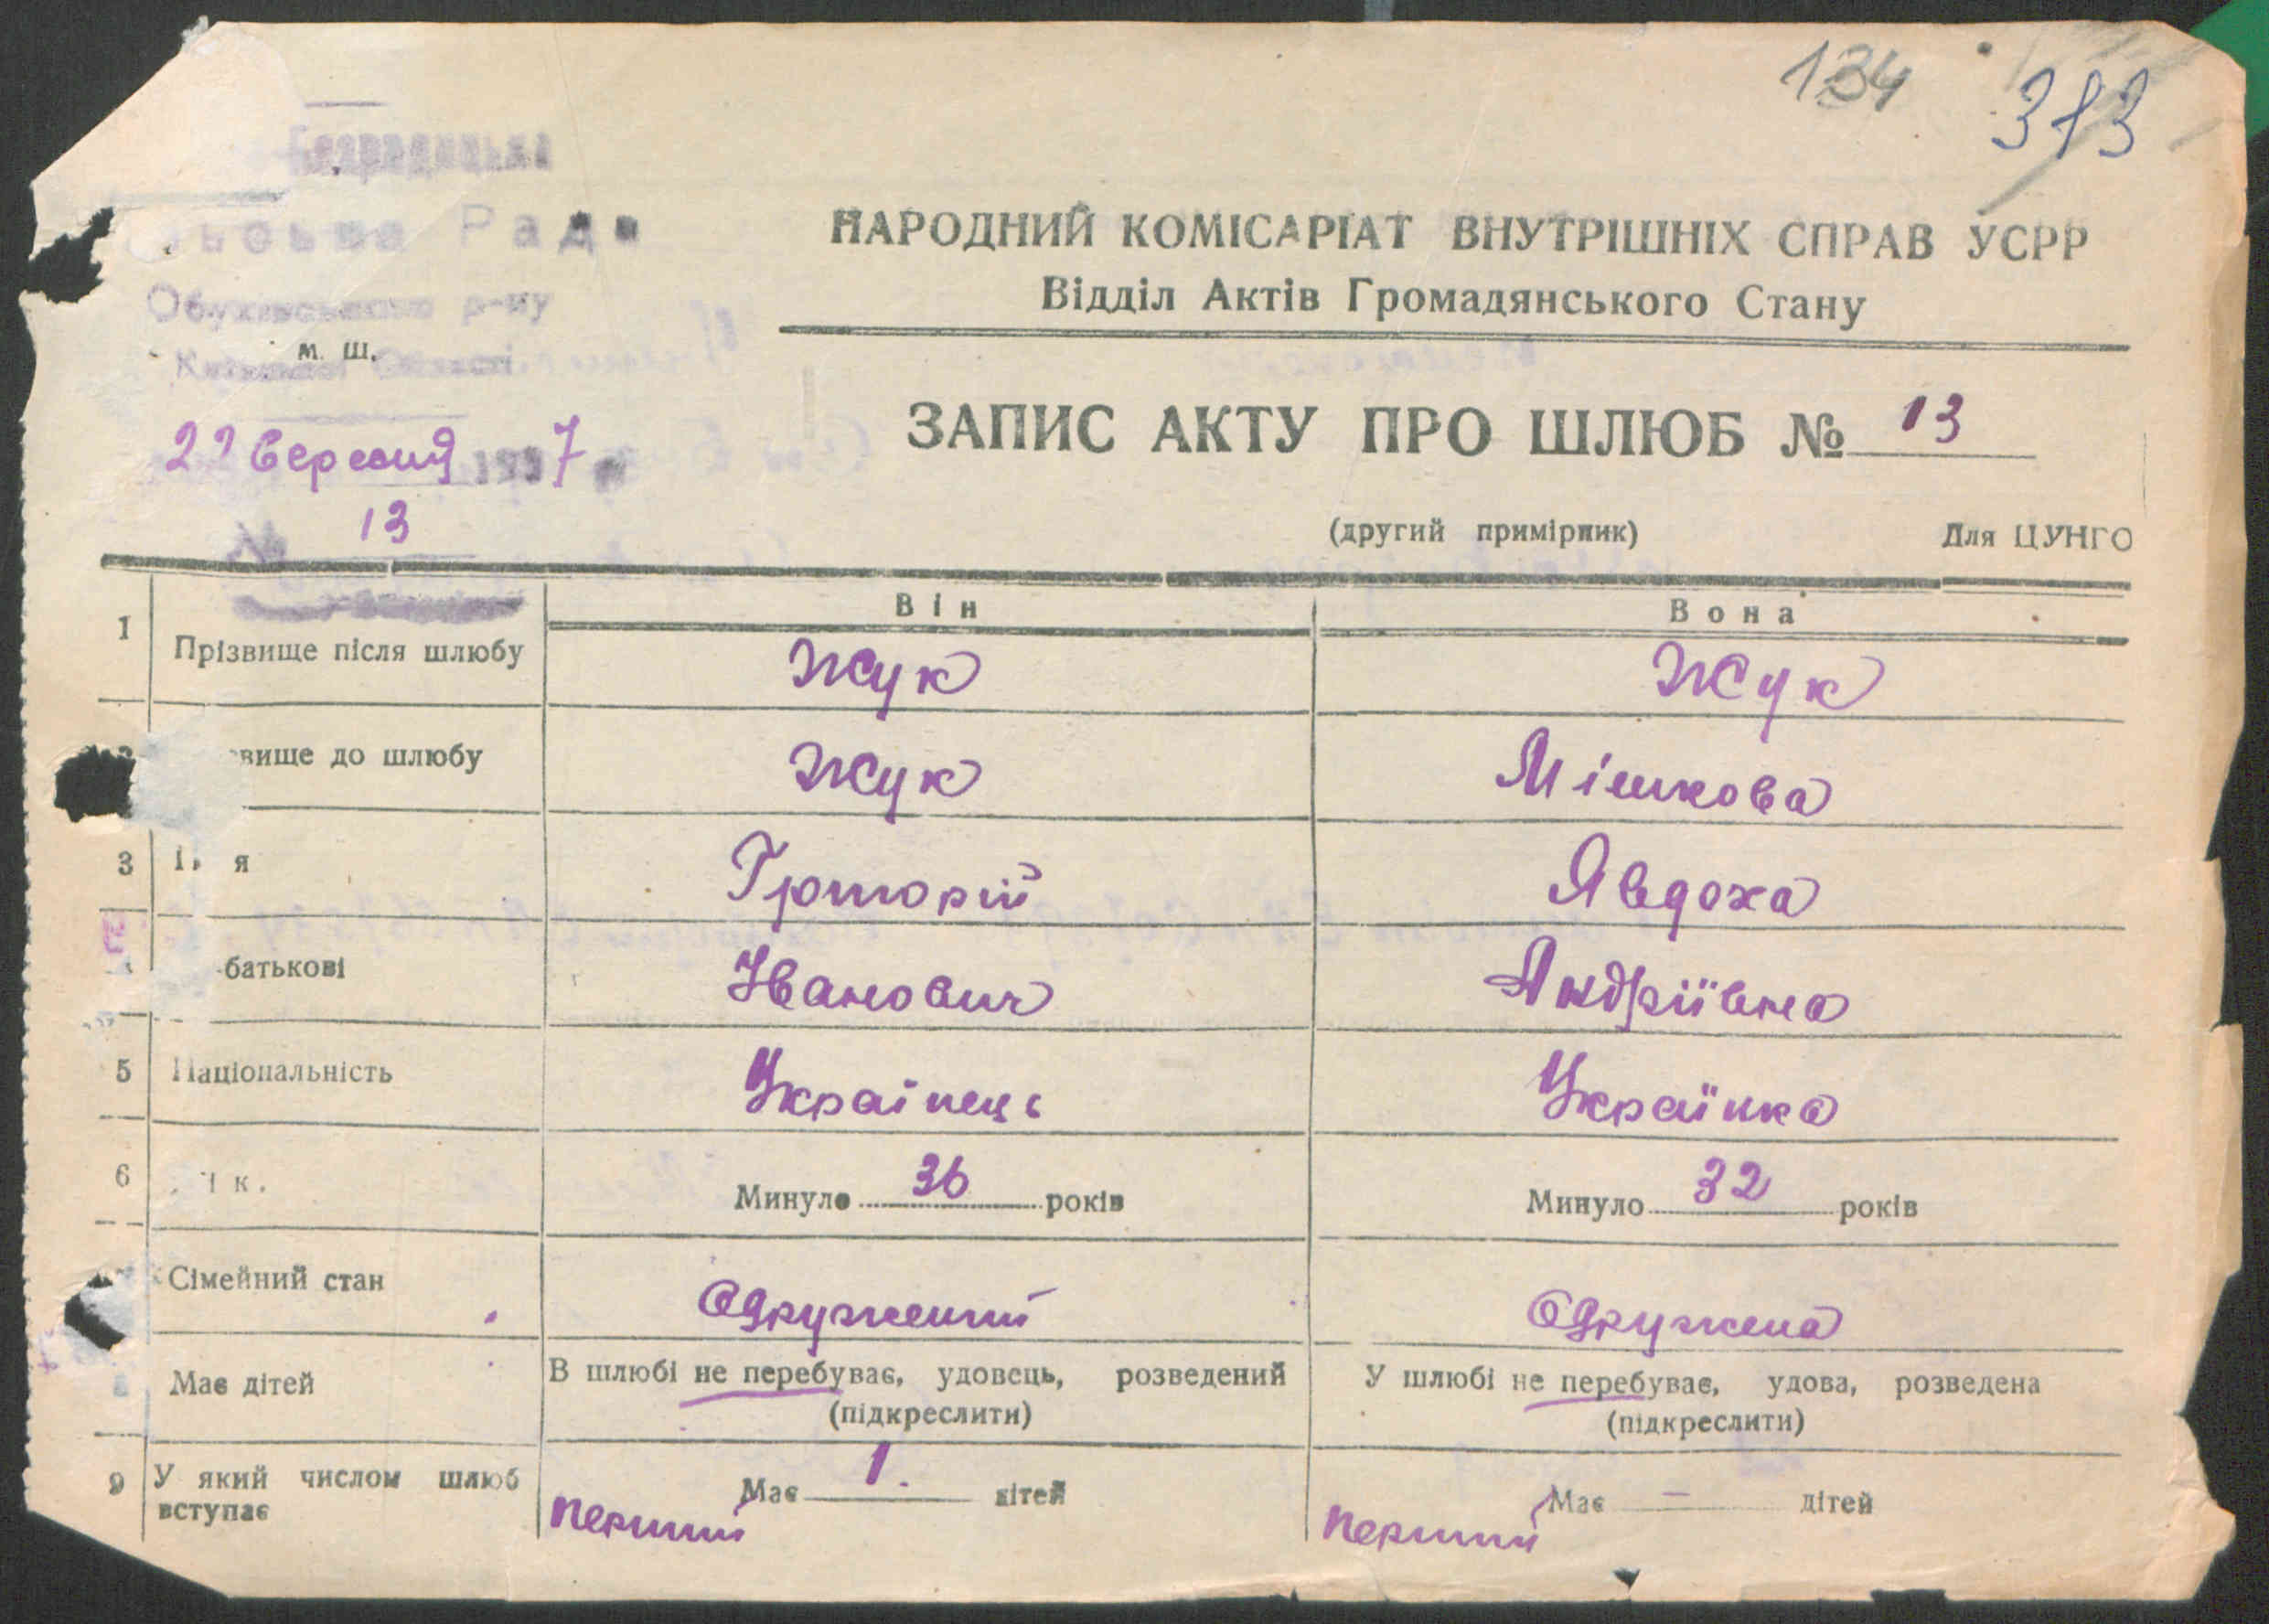 134
313
Рада
Обухівського р-ну
м. Ш.
Київської Області
НАРОДНИЙ КОМІСАРІАТ ВНУТРІШНІХ СПРАВ УСРР
Відділ Актів Громадянського Стану
ЗАПИС АКТУ ПРО ШЛЮБ № 13
22 вересня 1937 р
№ 13
(другий примірник) Для ЦУНГО
Він Вона
1 Прізвище після шлюбу Жук Жук
вище до шлюбу Жук Мішкова
3 І я Григорій Явдоха
батькові Іванович Андріївна
5 Національність Українець Українка
6 ік. Минуло 36 років Минуло 32 років
Сімейний стан Одружений Одружена
Має дітей В шлюбі не перебуває, удовець, розведений У шлюбі не перебуває, удова, розведена
(підкреслити) (підкреслити)
9 У який числом шлюб вступає Має 1. дітей Має — дітей
перший перший